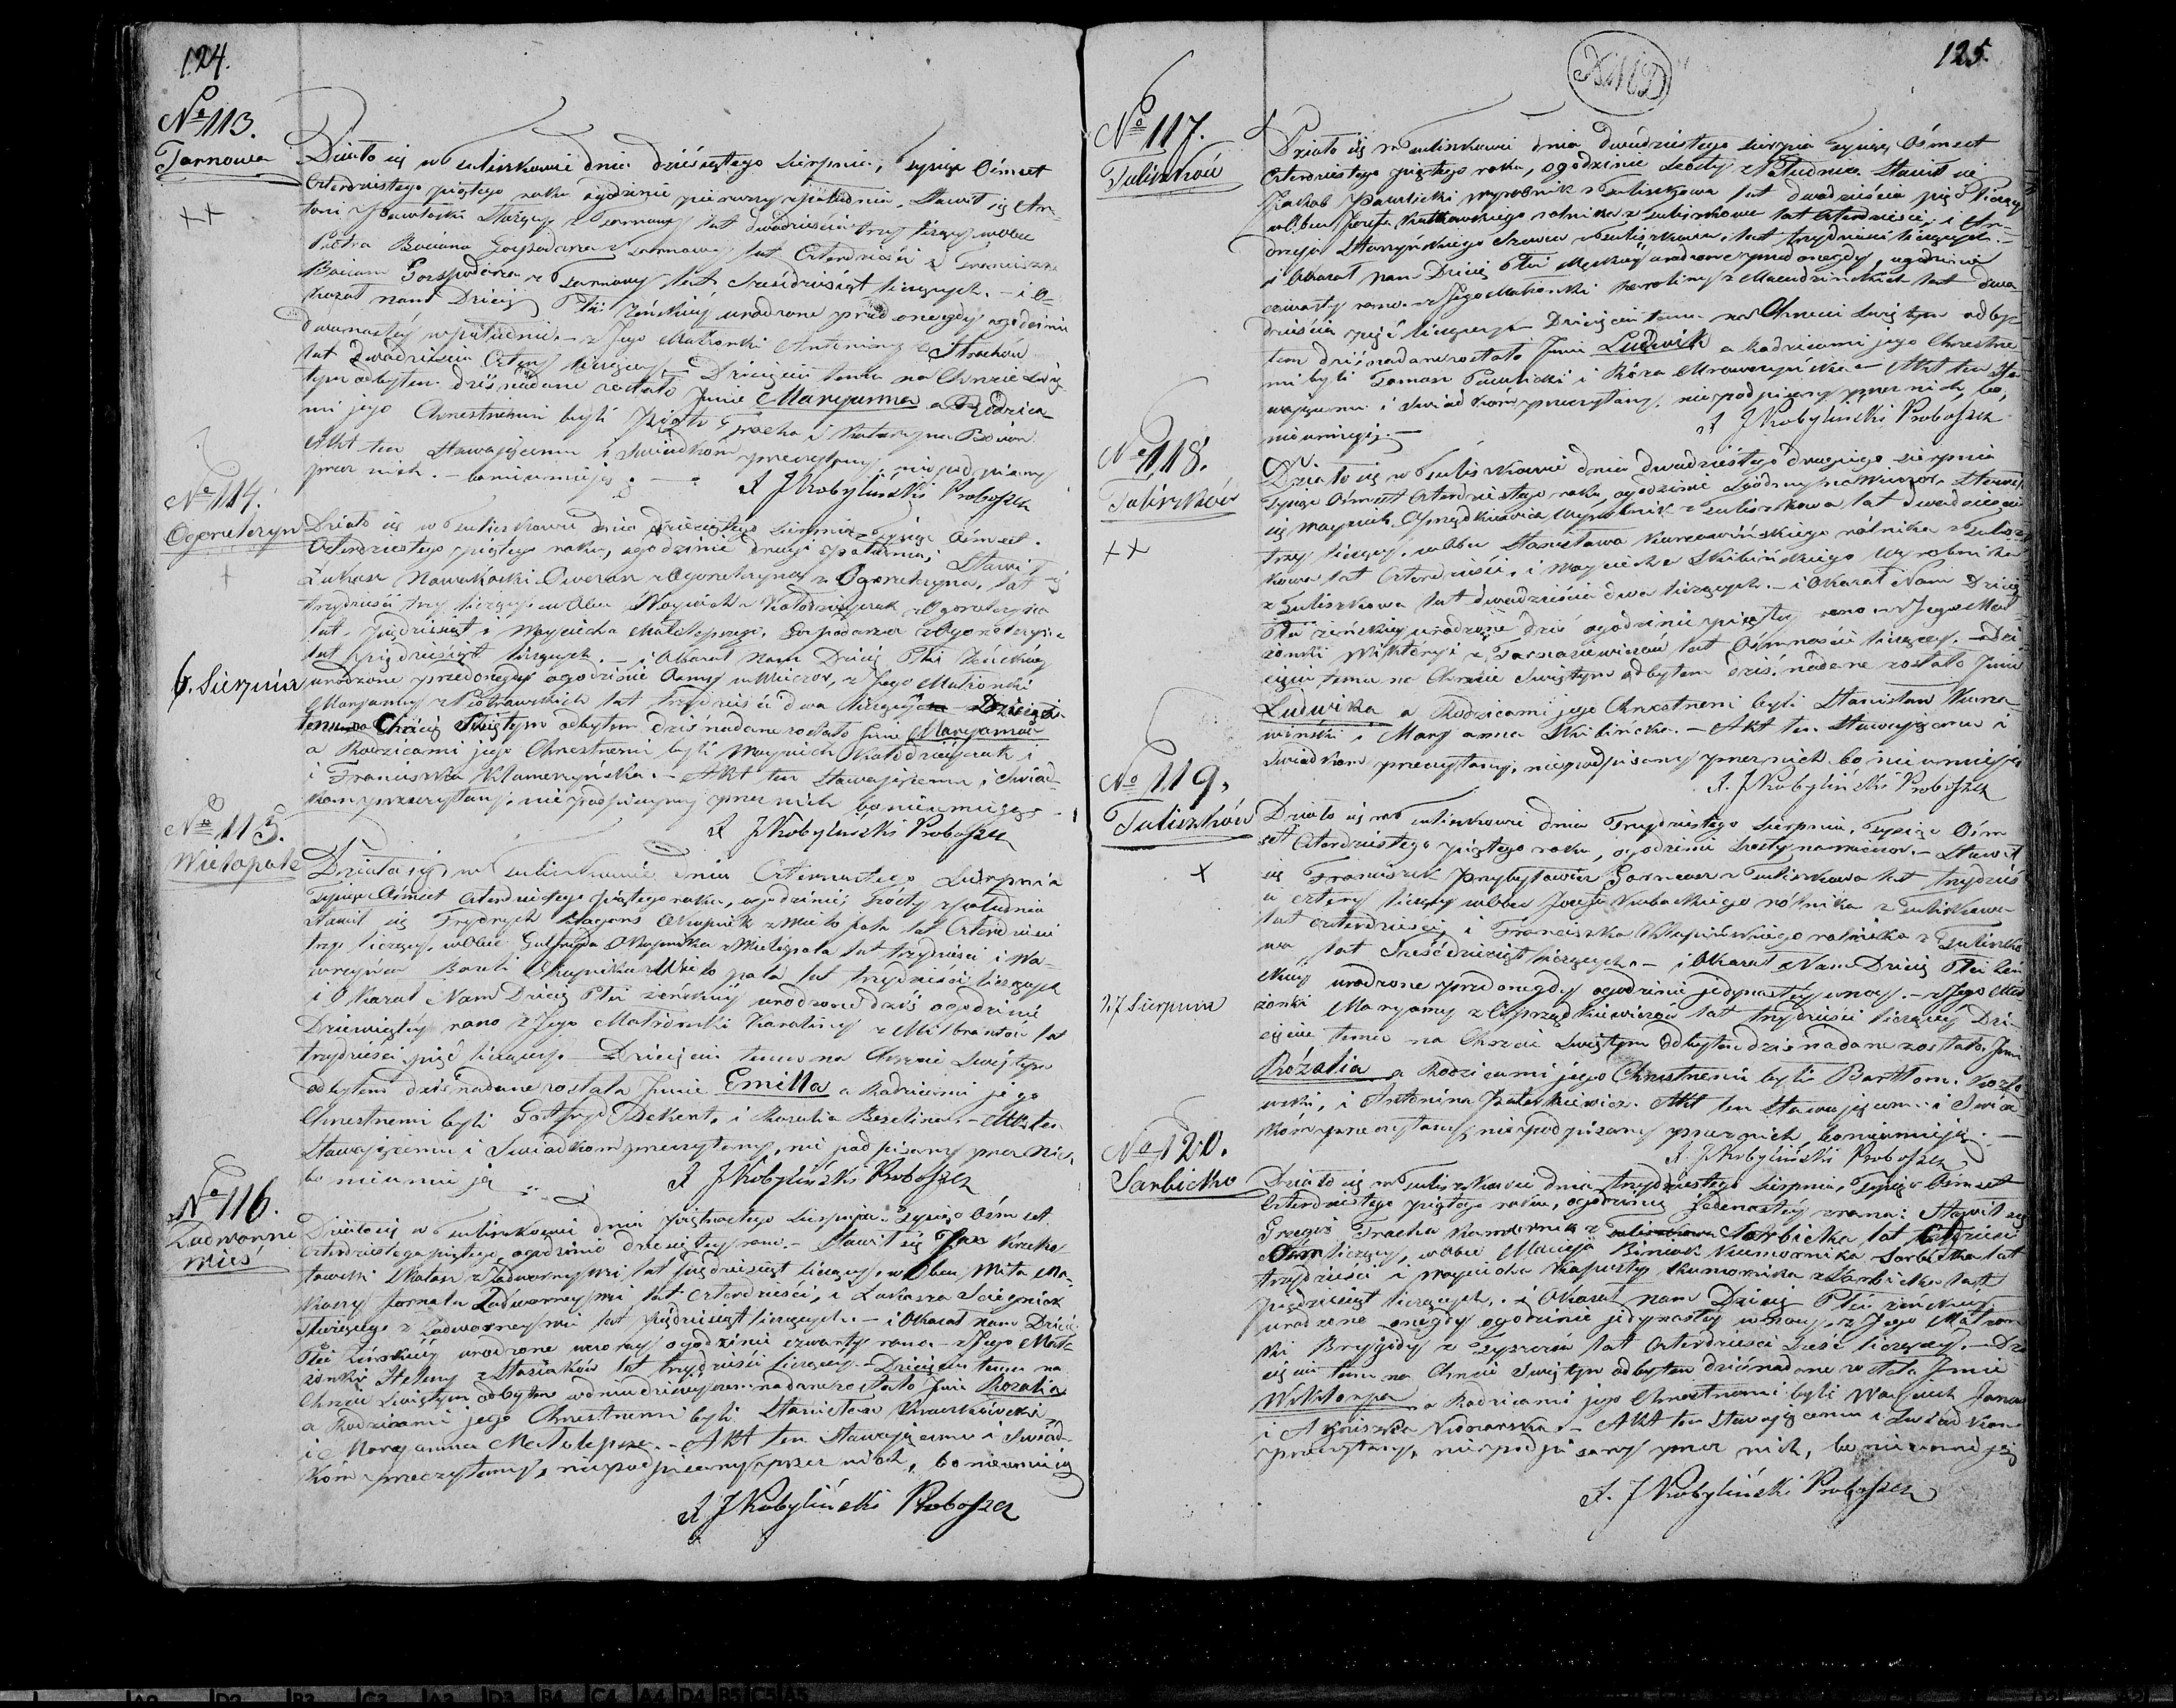 124.
Nº 113.
Tarnowa
Działo się w Tuliszkowie dnia dziesiątego Sierpnia, Tysiąc Ośmset
Czterdziestego piątego roku ogodzinie pierwszy społudnia. Stawił się An-
toni Służący z Tarnowy lat dwadzieścia trzy liczący wobec
Piotra Bociana Gospodarza z Tarnowy lat Czterdzieści i Franciszka
Bociana Gospodarza z Tarnowy lat Sześćdziesiąt liczących. – i O-
kazał nam Dziecię Płci Żeńskiéy urodzone przed onegdy ogodzinie
dwunastéy w południe. – z Jego Małżonki Antoniny z Strachów
lat dwadzieścia Cztery liczącey – Dziecięciu temu na Chrzcie Świę-
tym odbytem dziś nadane zostało Jmie Maryanna a Rodzica-
mi jego Chrzestnemi byli Fracka i Katarzyna Bocian
Akt ten Stawającemu i Świadkom przeczytany, nie podpisany
przez nich. – bo nieumieją. –
X J Kobyliński Proboszcz
Nº 114.
Ogorzelczyn
6. Sierpnia
Działo się w Tuliszkowie dnia dziesiątego Sierpnia Tysiąc Ośmset
Czterdziestego piątego roku, ogodzinie drugi społudnia, Stawił się
Łukasz Nowakoski Owczarz z Ogorzelczyna lat
trzydzieści trzy liczący. w Obec Woyciecha Kołodzieyczak z Ogorzelczyna
lat pięćdziesiąt i Woyciecha Małolepszego, Gospodarza z Ogorzelczyna
lat pięćdziesiąt liczących. – i Okazał nam Dziecię Płci Żeńskiéy
urodzone przedonegdy ogodzinie Osmy w Wieczór, z Jego Małżonki
Maryanny z Piotrowskich lat trzydzieści dwa liczącey – Dziecięciu
temu na Chrzcie Świętym odbytem dziś nadane zostało Jmie Maryanna
a Rodzicami jego Chrzestnemi byli Woyciech Kołodzieyczak i
i Franciszka Klamczyńska. – Akt ten Stawającemu i Świad-
kom przeczytany, nie podpisany przez nich bo nieumieją –
X J Kobyliński Proboszcz
Nº 115.
Wielopole
Działo się w Tuliszkowie dnia Czternastego Sierpnia
Tysiąc Ośmset Czterdziestego piątego roku, ogodzinie, szósty społudnia
Stawił się Frydrych Okupnik z Wielopola lat Czterdzieści
trzy liczący, wobec Gotfryda Okupnika z Wielopola lat trzydzieści i Wa-
wrzyńca Okupnika z Wielopola lat trzydzieści liczących
i Okazał Nam Dziecię Płci żeńskiéy urodzone dziś ogodzinie
Dziewiątéy rano z Jego Małżonki Karoliny z Milbrantów lat
trzydzieści pięć liczącey. – Dziecięciu temu na Chrzcie Świętym
odbytem dziś nadane zostało Jmie Emilia a Rodzicami jego
Chrzestnemi byli Gotfryd i Rozalia Akt ten
Stawającemu i Świadkom przeczytany, nie podpisany przez nich
bo nieumieją
X J Kobyliński Proboszcz
Nº 116.
Zadworna
wieś
Działo się w Tuliszkowie dnia piętnastego Sierpnia Tysiąc Ośmset
Czterdziestego piątego, ogodzinie dziesiątey rano. – Stawił się Jan
z Zadworny wsi lat pięćdziesiąt liczący, w Obec Wita Ma-
Fornala z Zadworney wsi lat Czterdzieści, i Łukasza
Służącego z Zadworney wsi lat pięćdziesiąt liczących. – i Okazał nam Dziecię
Płci Żeńskiéy urodzone wczoray ogodzinie czwarty rano – z Jego Mał-
żonki Heleny z Stasiaków lat trzydzieści liczącey. – Dziecięciu temu na
Chrzcie Świętym odbytem w dniu dzisieyszem nadane zostało Jmie Rozalia
a Rodzicami jego Chrzestnemi byli Stanisław
i Maryanna Małolepsza. – Akt ten Stawającemu i Świad-
kóm przeczytany, nie podpisany przez nich, bo nieumieią
X J Kobyliński Proboszcz
125.
Nº 117.
Tuliszków
Działo się w Tuliszkowie dnia dwudziestego Sierpnia Tysiąc Ośmset
Czterdziestego piątego roku, ogodzinie szósty z Południa Stawił się
Jakób Pawlicki wyrobnik z Tuliszkowa lat dwadzieścia pięć liczący
w Obec Józefa rolnika z Tuliszkowa lat Czterdzieści, i An-
drzeja Starzyńskiego Szewca w Tuliszkowie, lat trzydzieści liczących. –
i Okazał nam Dziecię Płci Męskiéy urodzone przed onegdy, ogodzinie
czwarty rano – z Jego Małżonki Karoliny z lat dwa-
dzieścia pięć liczącey Dziecięciu temu na Chrzcie Świętym odby-
tem dziś nadane zostało Jmie Ludwik a Rodzicami jego Chrzestne-
mi byli Tomasz Pawlicki i Róża Akt ten Sta-
wającemu i Świadkom przeczytany, nie podpisany przez nich, bo
nieumieją. –
X J Kobyliński Proboszcz
Nº 118.
Tuliszków
Działo się w Tuliszkowie dnia dwudziestego drugiego Sierpnia
Tysiąc Ośmset Czterdziestego roku, ogodzinie Siódmy na Wieczór Stawił
się Woyciech Oprządkiewicz Wyrobnik z Tuliszkowa lat dwadzieścia
trzy liczący. w Obec Stanisława rólnika z Tulisz-
kowa lat Czterdzieści, i Woyciecha Skibińskiego Wyrobnika
z Tuliszkowa lat dwadzieścia dwa liczących. – i Okazał Nam Dziecię
Płci żeńskiey urodzone dziś ogodzinie piąty rano z Jego Mał-
żonki Wiktoryi z lat Ośmnaście liczącey. – Dzi-
ęciu temu na Chrzcie Świętym odbytem dziś nadane zostało Jmie
Ludwika a Rodzicami jego Chrzestnemi byli Stanisław
i Maryanna Skibińska. – Akt ten Stawającemu i
Świadkom przeczytany, nie podpisany przez nich bo nieumieją
X. J Kobyliński Proboszcz
Nº 119.
Tuliszków
27 Sierpnia
Działo się w Tuliszkowie dnia Trzydziestego Sierpnia, Tysiąc Ośm-
set Czterdziestego piątego roku, ogodzinie szosty na wieczor. – Stawił
się Franciszek Przybyłowicz Garncarz z Tuliszkowa lat trzydzieś-
ci cztery liczący wobec Józefa Kubackiego rólnika z Tuliszkowa
lat czterdzieści, i Franciszka rolnika z Tuliszko-
wa lat Sześćdziesiąt liczących. – i Okazał Nam Dziecię Płci Żeń-
skiey urodzone przedonegdy ogodzinie jedynastéy w nocy. – z Jego Mał-
żonki Maryanny z Oprządkiewiczów lat trzydzieści liczącéy Dzi-
ęciu temu na Chrzcie Świętym odbytem dziś nadane zostało Jmie
Rózalia a Rodzicami jego Chrzestnemi byli Bartłom. Kozło-
wski, i Antonina Akt ten Stawającemu i Świad-
kom przeczytany, nie podpisany przez nich, bo nieumieją –
X J Kobyliński Proboszcz
Nº 120.
Sarbicko
Działo się w Tuliszkowie dnia trzydziestego Sierpnia, Tysiąc Ośmset
Czterdziestego piątego roku, ogodzinie Jedenastéy zrana: Stawił się
Grzegórz Fracka Komornik z Sarbicka lat
Ośm liczący, w Obec Macieja Komornika z Sarbicka lat
trzydzieści i Woyciecha Kapusty Komornika z Sarbicka lat
pięćdziesiąt liczących. i Okazał nam Dziecię Płci żeńskiéy
urodzone onegdy ogodzinie jedynastey w nocy. z Jego Małżon-
ki Brygidy z lat Czterdzieści Sześć liczącey. – Dzi-
ęciu temu na Chrzcie Świętym odbytem dziś nadane zostało Jmie
Wiktorya a Rodzicami jego Chrzestnemi byli Woyciech
i Agniszka Akt ten Stawającemu i Świadkom
przeczytany, nie podpisany przez nich, bo nieumieją
X. J Kobyliński Proboszcz